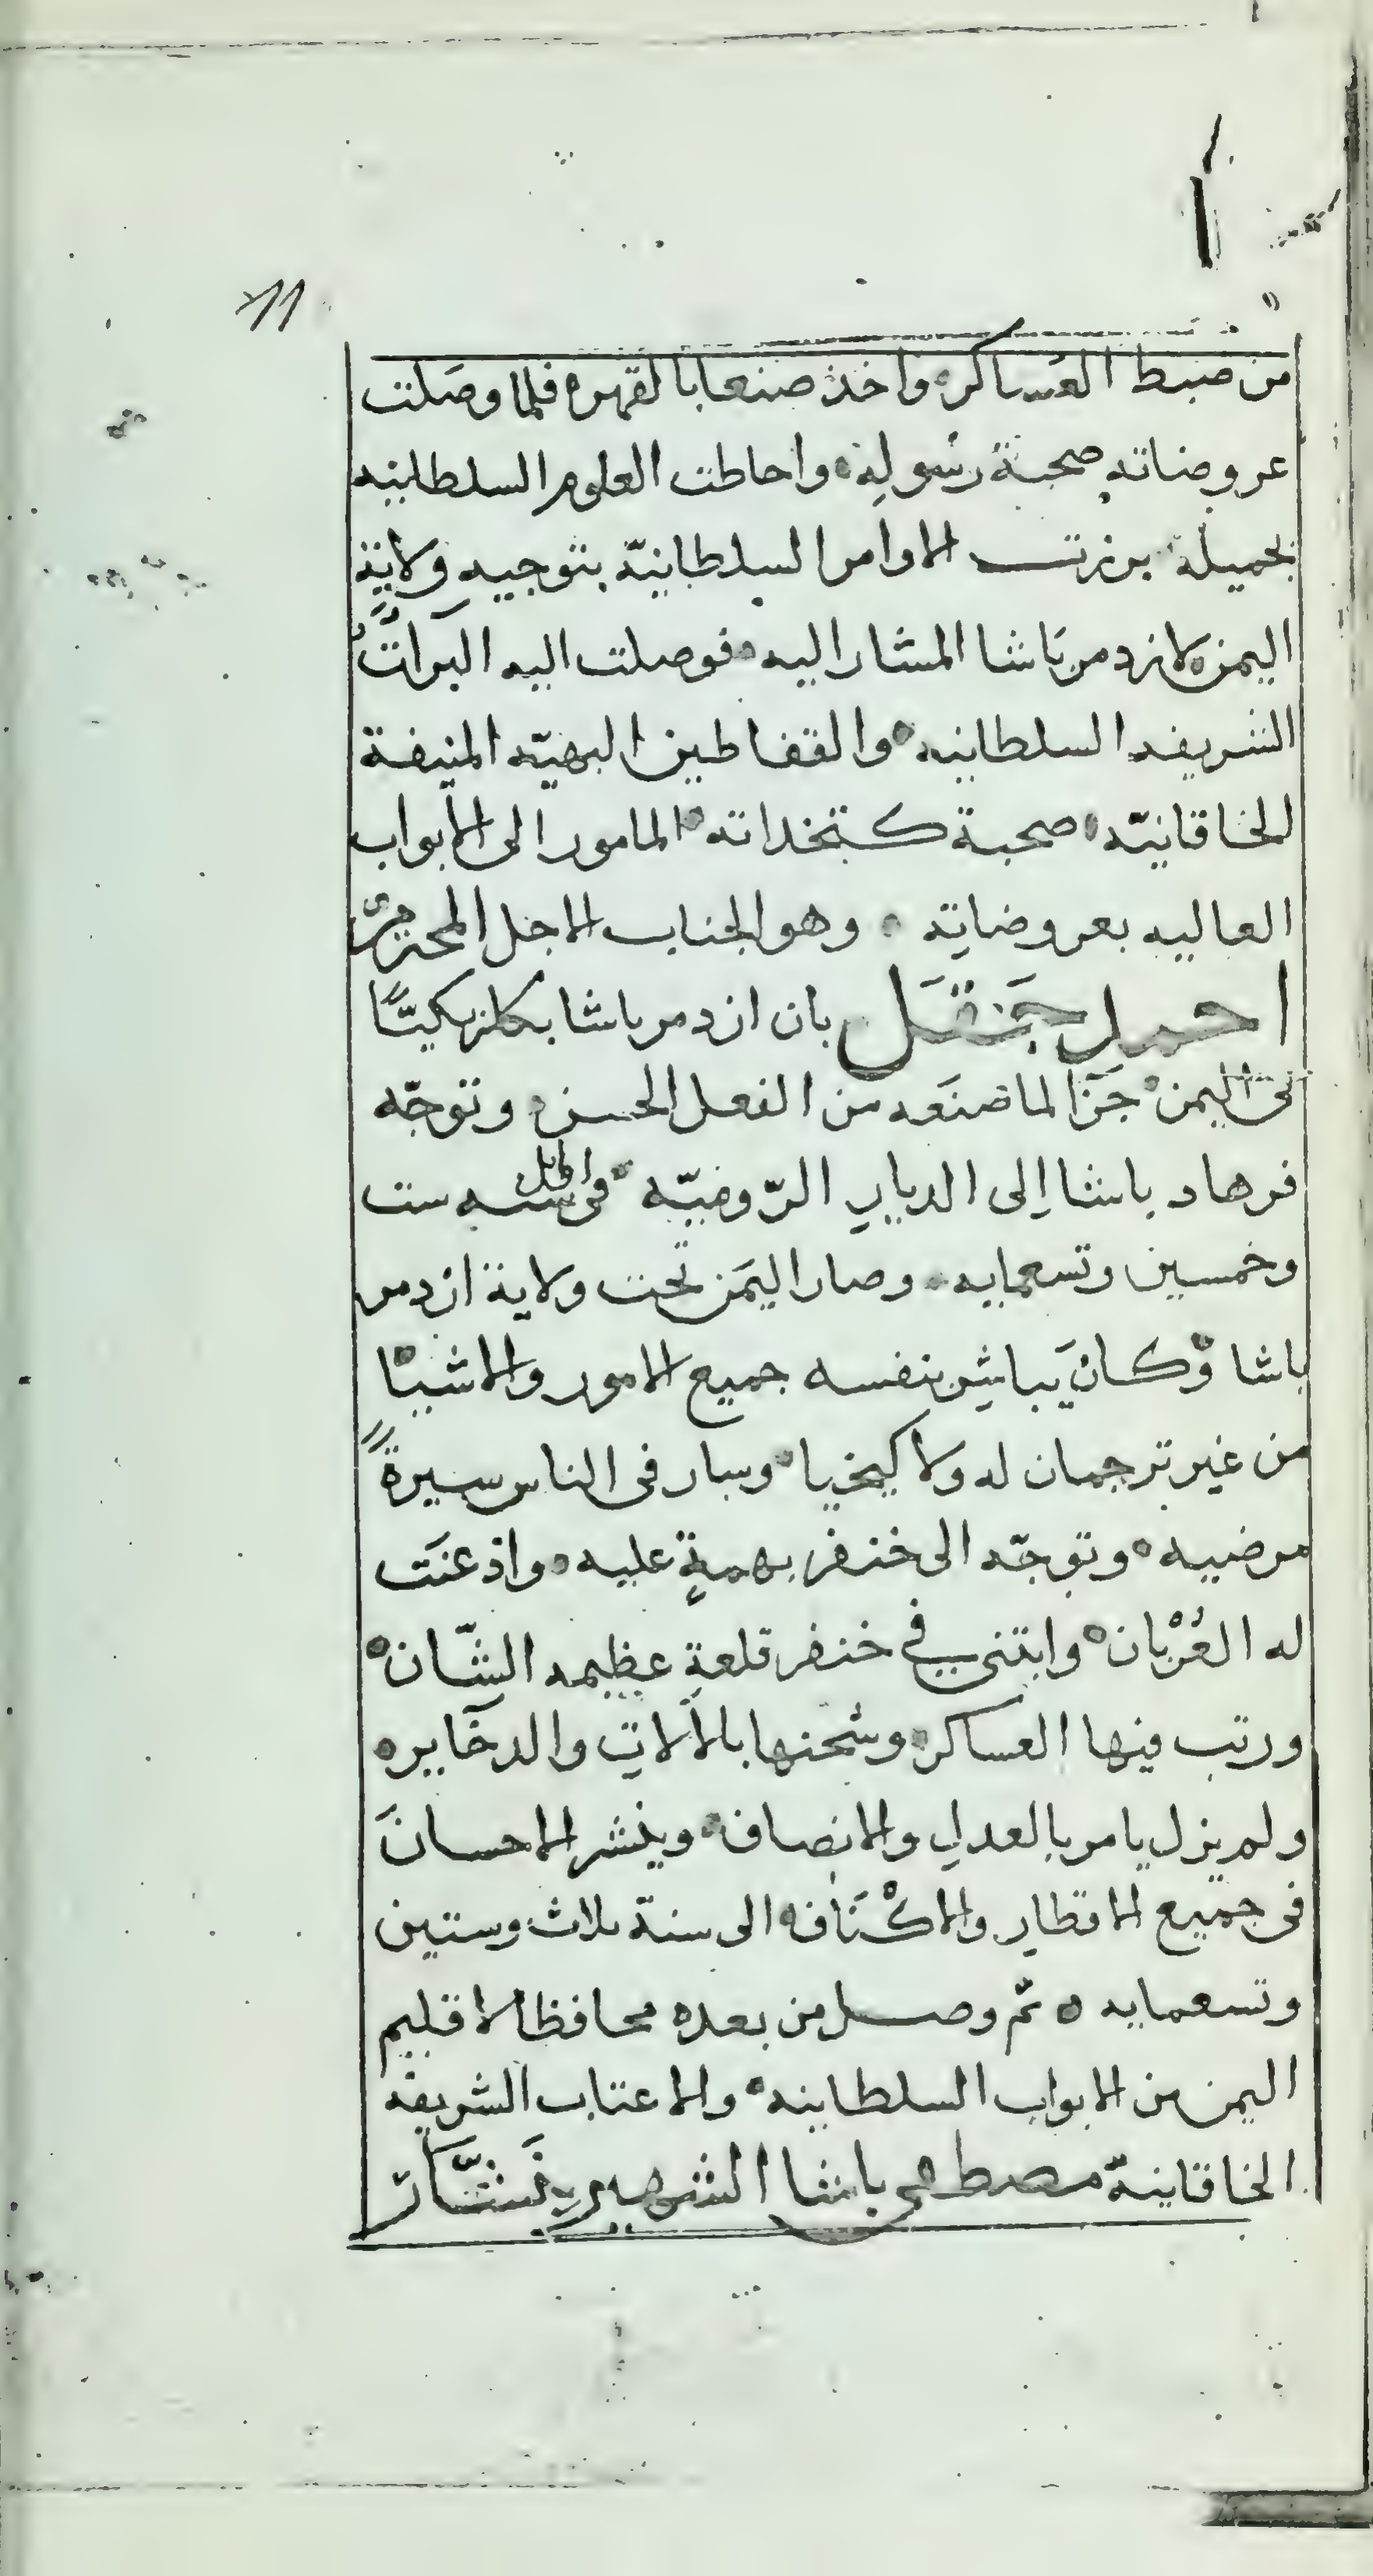 ١١
من ضبط العساكر ه واخذ صنعا بالقهره فلما وصَلت
عروضاته صحبة رسوله ه واحاطت العلوم السلطانيه
بجميله برزت الاوامر السلطانيّة بتوجيه ولاية
اليمن ه لازدمر باشا المشار اليه ه فوصلت اليه البرآتُ
الشريفه السلطانيه ه والقفاطين البهيّه المنيفة
الخاقانيّه ه صحبة كتخداته ه المامور الى الابواب
العاليه بعروضاتِه ه وهو الجناب الاجل المحترم
احمد جَنقَل بان ازدمر باشا بكلربكيّاً
في اليمن ه جَزآ لما صنعَه من الفعل الحسن ه وتوجّه
فرهاد باشا اِلى الديارِ الرّوميّه ه في اوايل سنه ست
وخمسين وتسعمايه ه وصار اليمَن تحت ولاية ازدمر
باشا ه وكان يَباشِر بنفسه جميع الامور والاشيا ه
من غير ترجمان له ولا كيخيا ه وسار فى الناس سيرةً
مرضيه ه وتوجّه الى خنفر بهمةٍ عليه ه واذعنَت
له العُرْبان ه وابتنى في خنفر قلعةٍ عظيمه الشّان ه
ورتب فيها العساكر ه وشحنها بالالاتِ والدخَاير ه
ولم يزل يامر بالعدلِ والانصاف ه وينشر الاحسانَ
فى جميع الاقطارِ والاكْنَاف ه الى سنة ثلاث وستين
وتسعمايه ه ثم وصل من بعده محافظا لاقليم
اليمن من الابواب السلطانيه ه والاعتاب الشريفه
الخاقانيّة مصطفى باشا الشهير بِنَشّار